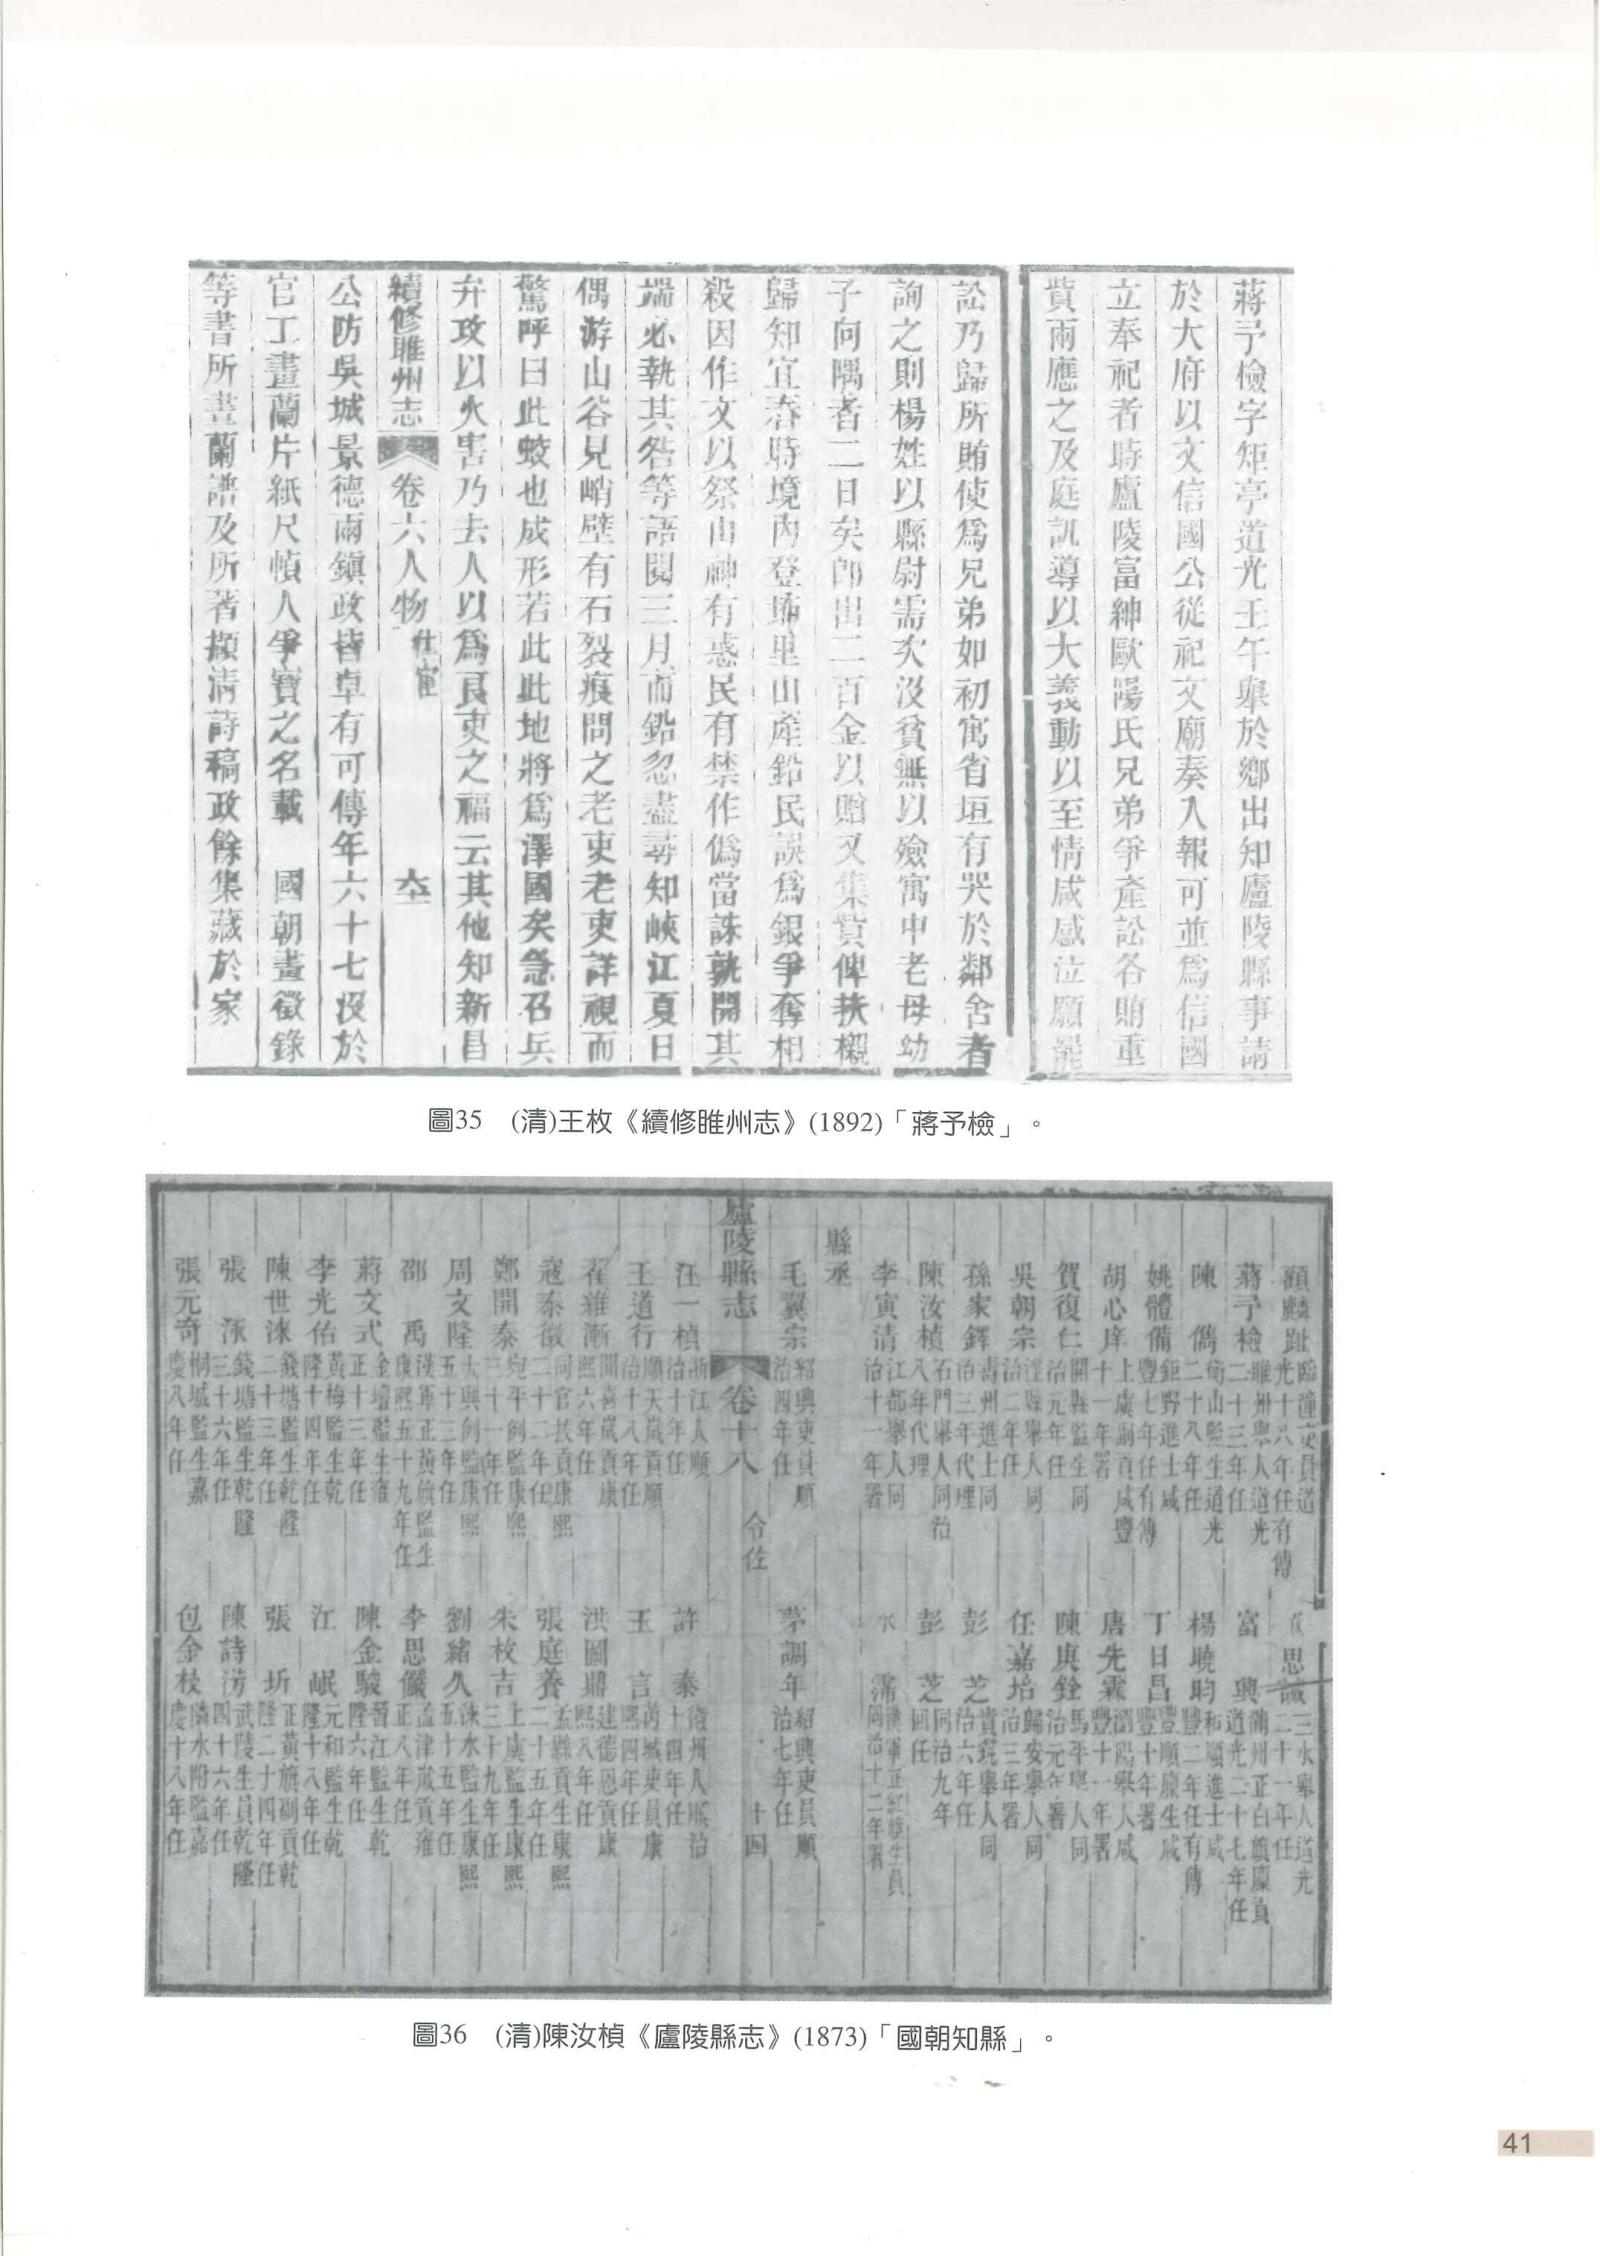 蔣予檢字矩亭道光壬午舉於鄉出知廬陵縣事請
於大府以文信國公從祀文廟奏入報可並爲信國
立奉祀者時廬陵富紳歐陽氏兄弟爭產訟各賄重
貲兩應之及庭訊導以大義動以至情咸感泣願罷
訟乃歸所賄使爲兄弟如初寓省垣有哭於鄰舍者
詢之則楊姓以縣尉需次沒貧無以殮寓中老母幼
子向隅者二日矣卽出二百金以贈又集貲俾扶櫬
歸知宜春時境內登 里山產鉛民誤爲銀爭奪相
殺因作文以祭山神有惑民有禁作僞當誅孰開其
端必執其咎等語閱三月而鉛忽盡尋知峽江夏日
偶游山谷見峭壁有石裂痕問之老吏老吏詳視而
驚呼曰此蛟也成形若此此地將爲澤國矣急召兵
弁攻以火害乃去人以爲良吏之福云其他知新昌
續修睢州志 卷六人物 仕宦
公防吳城景德兩鎭政皆卓有可傳年六十七沒於
官工畫蘭片紙尺幀人爭寶之名載 國朝畫徵錄
等書所畫蘭譜及所著擷淸詩稿政餘集藏於家
圖35 (清)王枚《續修睢州志》(1892)「蔣予檢」。
顧麟趾 臨潼吏員道光十八年任有傳 思誠 三水舉人道光二十一年任
蔣予檢 睢州舉人道光二十三年任 富興 滿州正白旗廩貢道光二十七年任
陳儁 衡山監生道光二十八年任 楊曉昀 和順進士咸豐二年任有傳
姚體備 鉅野進士咸豐七年任有傳 丁日昌 豐順廩生咸豐十年署
胡心庠 上虞副貢咸豐十一年署 唐先霖 瀏陽舉人咸豐十一年署
賀復仁 開縣監生同治元年任 陳庚銓 馬平舉人同治元年署
吳朝宗 涇縣舉人同治二年任 任嘉培 歸安舉人同治三年署
孫家鐸 壽州進士同治三年代理 彭芝 貴筑舉人同治六年任
陳汝楨 石門舉人同治八年代理 彭芝 同治九年回任
李寅清 江都舉人同治十一年署 霈 漢軍正紅旗生員同治十二年署
縣丞
毛翼宗 紹興吏員順治四年任 茅調年 紹興吏員順治七年任
廬陵縣志 卷十八 令佐 十四
汪一楨 浙江人順治十年任 許泰 人順治十四年任
王道行 順天歲貢順治十八年任 王言 芮城吏員康熙四年任
翟維漸 聞喜歲貢康熙六年任 洪圖鼎 建德恩貢康熙八年任
寇泰徵 同官拔貢康熙二十二年任 張庭養 孟縣貢生康熙二十五年任
鄭開泰 宛平例監康熙三十一年任 朱枚吉 上虞監生康熙三十九年任
周文隆 大興例監康熙五十三年任 劉緒久 淶水監生康熙五十五年任
邵禹 漢軍正黃旗監生康熙五十九年任 李思儼 孟津歲貢雍正八年任
蔣文式 金壇監生雍正十三年任 陳金駿 晉江監生乾隆六年任
李光佑 黃梅監生乾隆十四年任 江岷 元和監生乾隆十八年任
陳世淶 錢塘監生乾隆二十三年任 張圻 正黃旗副貢乾隆二十四年任
張涿 錢塘監生乾隆三十六年任 陳詩涝 武陵生員乾隆四十六年任
張元奇 桐城監生嘉慶八年任 包金杖 隣水附監嘉慶十八年任
圖36 (清)陳汝楨《廬陵縣志》(1873)「國朝知縣」。
41